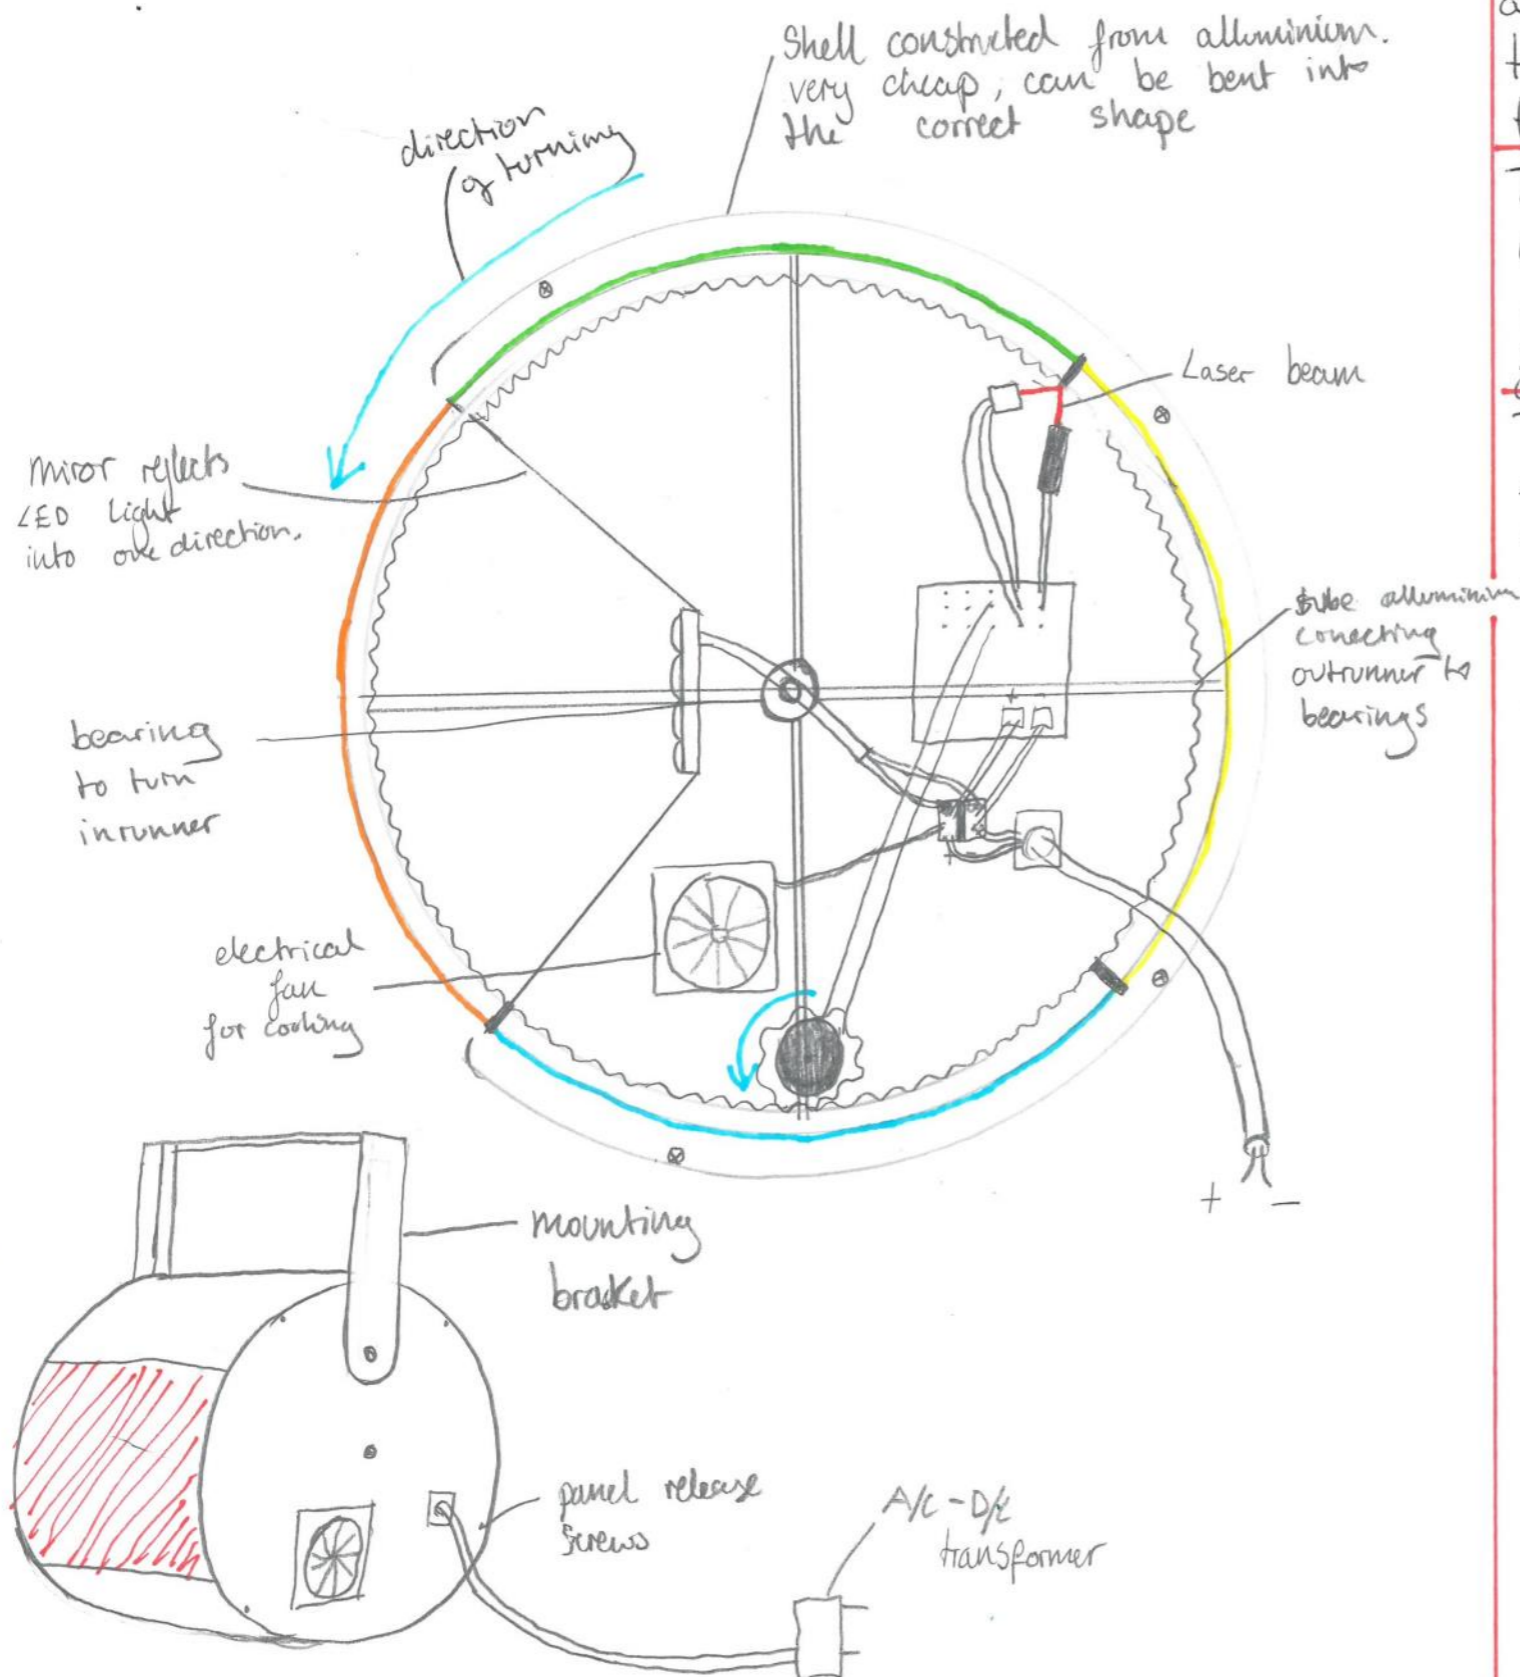 Shell constructed from alluminium.
very cheap, can be bent into
the correct shape
direction
of turning
Laser beam
miror reflects
LED light
into one direction.
tube alluminium
conecting
outrunner to
bearings
bearing
to turn
inrunner
electrical
fan
for cooling
+ -
+ -
+ -
mounting
bracket
panel release
screws
A/C - D/C
transformer